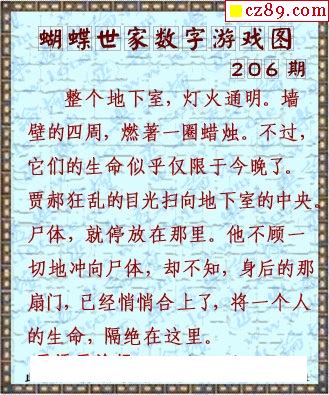 cz89.com
蝴蝶世家数字游戏图
206 期
整个地下室，灯火通明。墙
壁的四周，燃著一圈蜡烛。不过，
它们的生命似乎仅限于今晚了。
贾郝狂乱的目光扫向地下室的中央。
尸体，就停放在那里。他不顾一
切地冲向尸体，却不知，身后的那
扇门，已经悄悄合上了，将一个人
的生命，隔绝在这里。